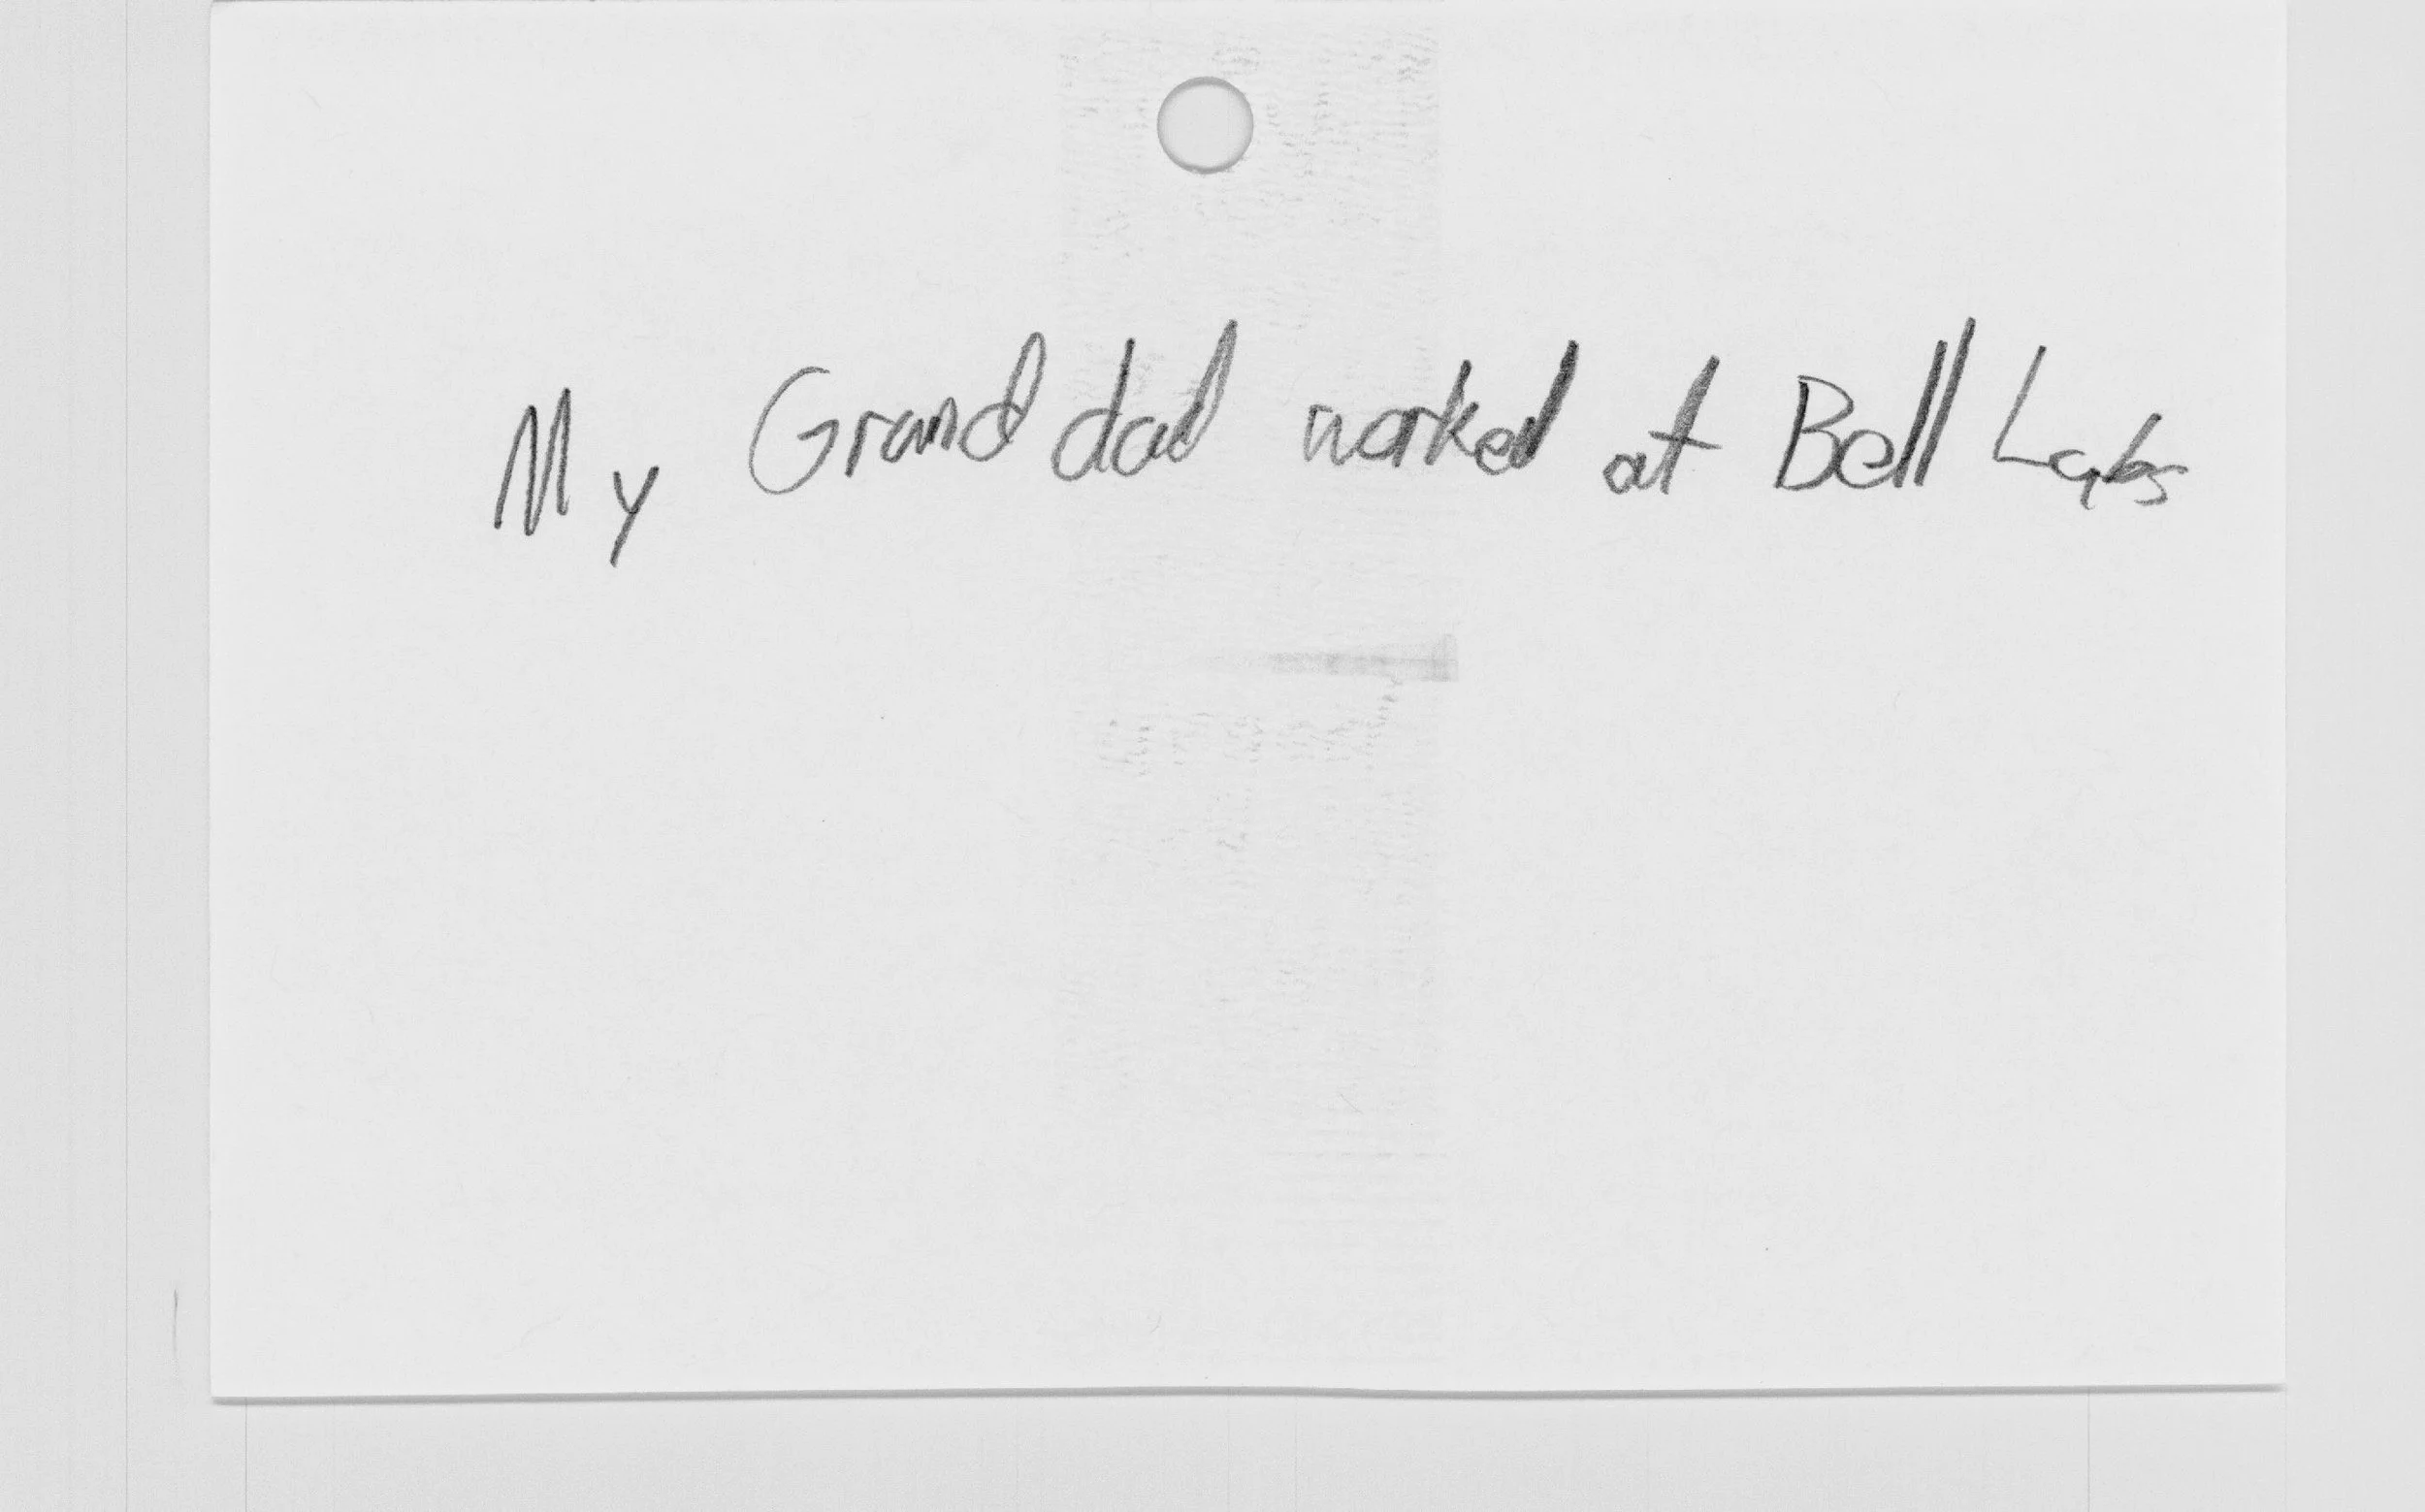 My Grand dad worked at Bell Labs